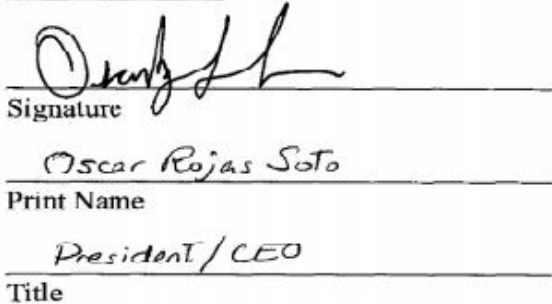 Signature
Oscar Rojas Soto
Print Name
President/CEO
Title